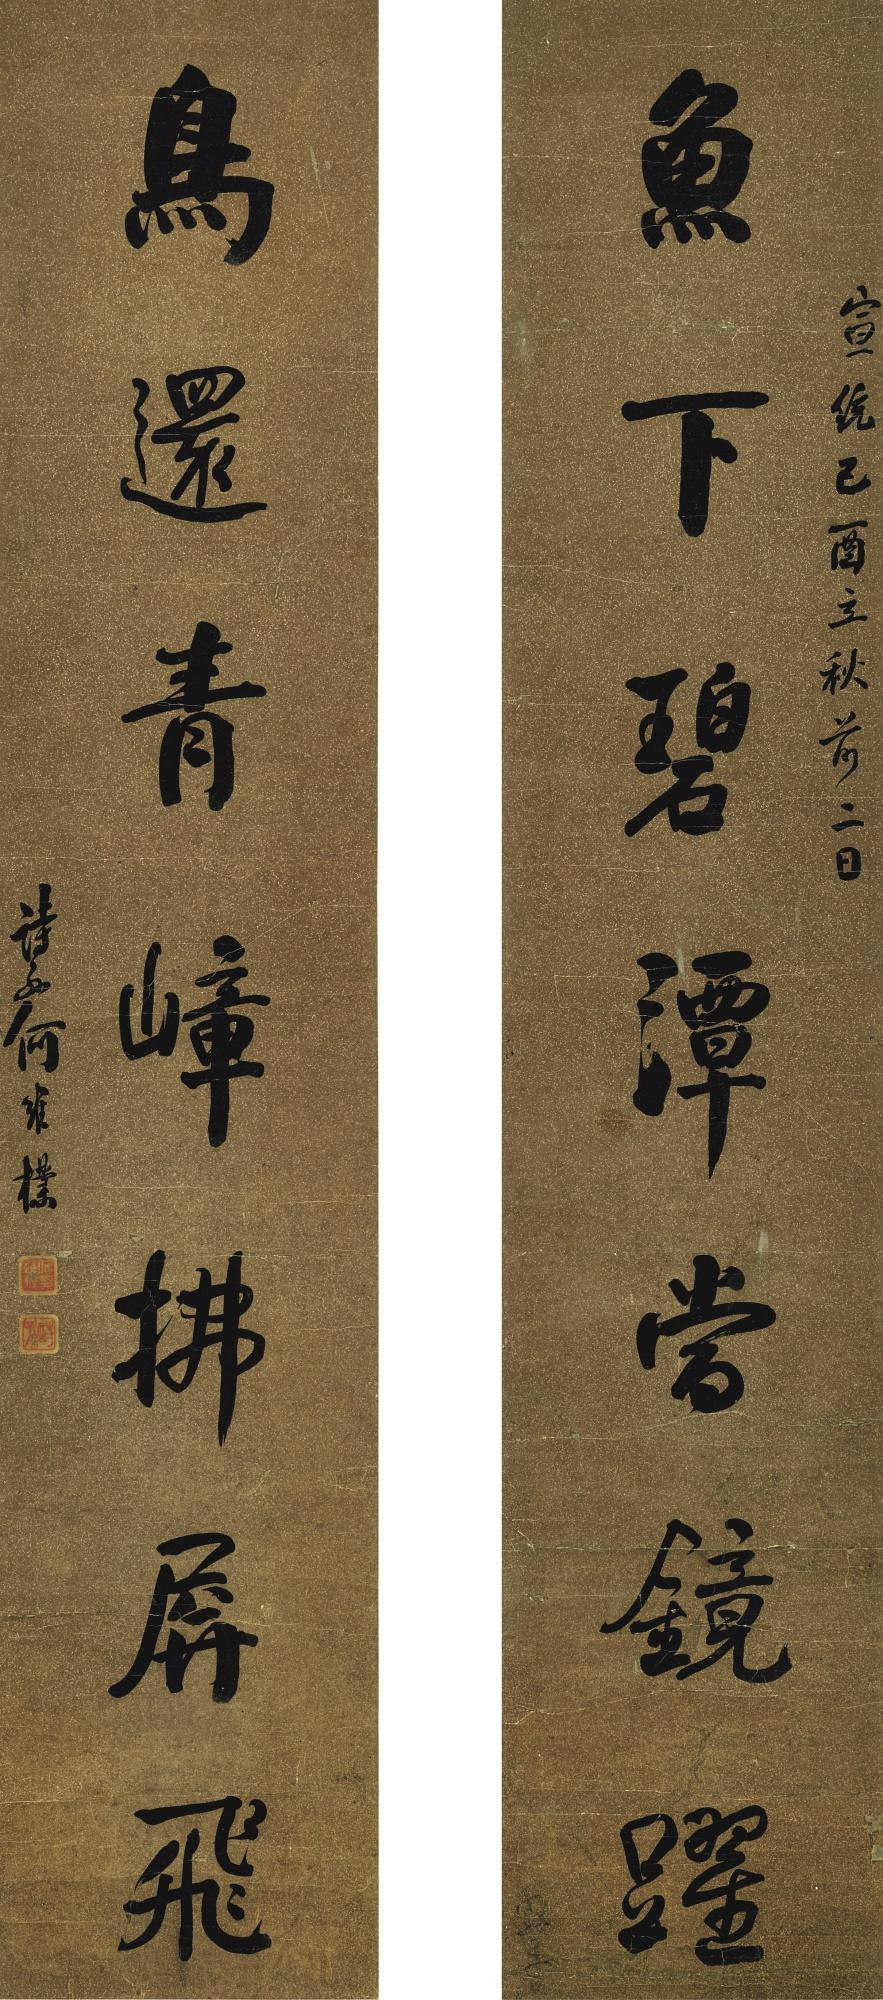 宣統己酉立秋前二日
魚下碧潭當鏡躍
鳥還青嶂拂屏飛
詩孫何維樸